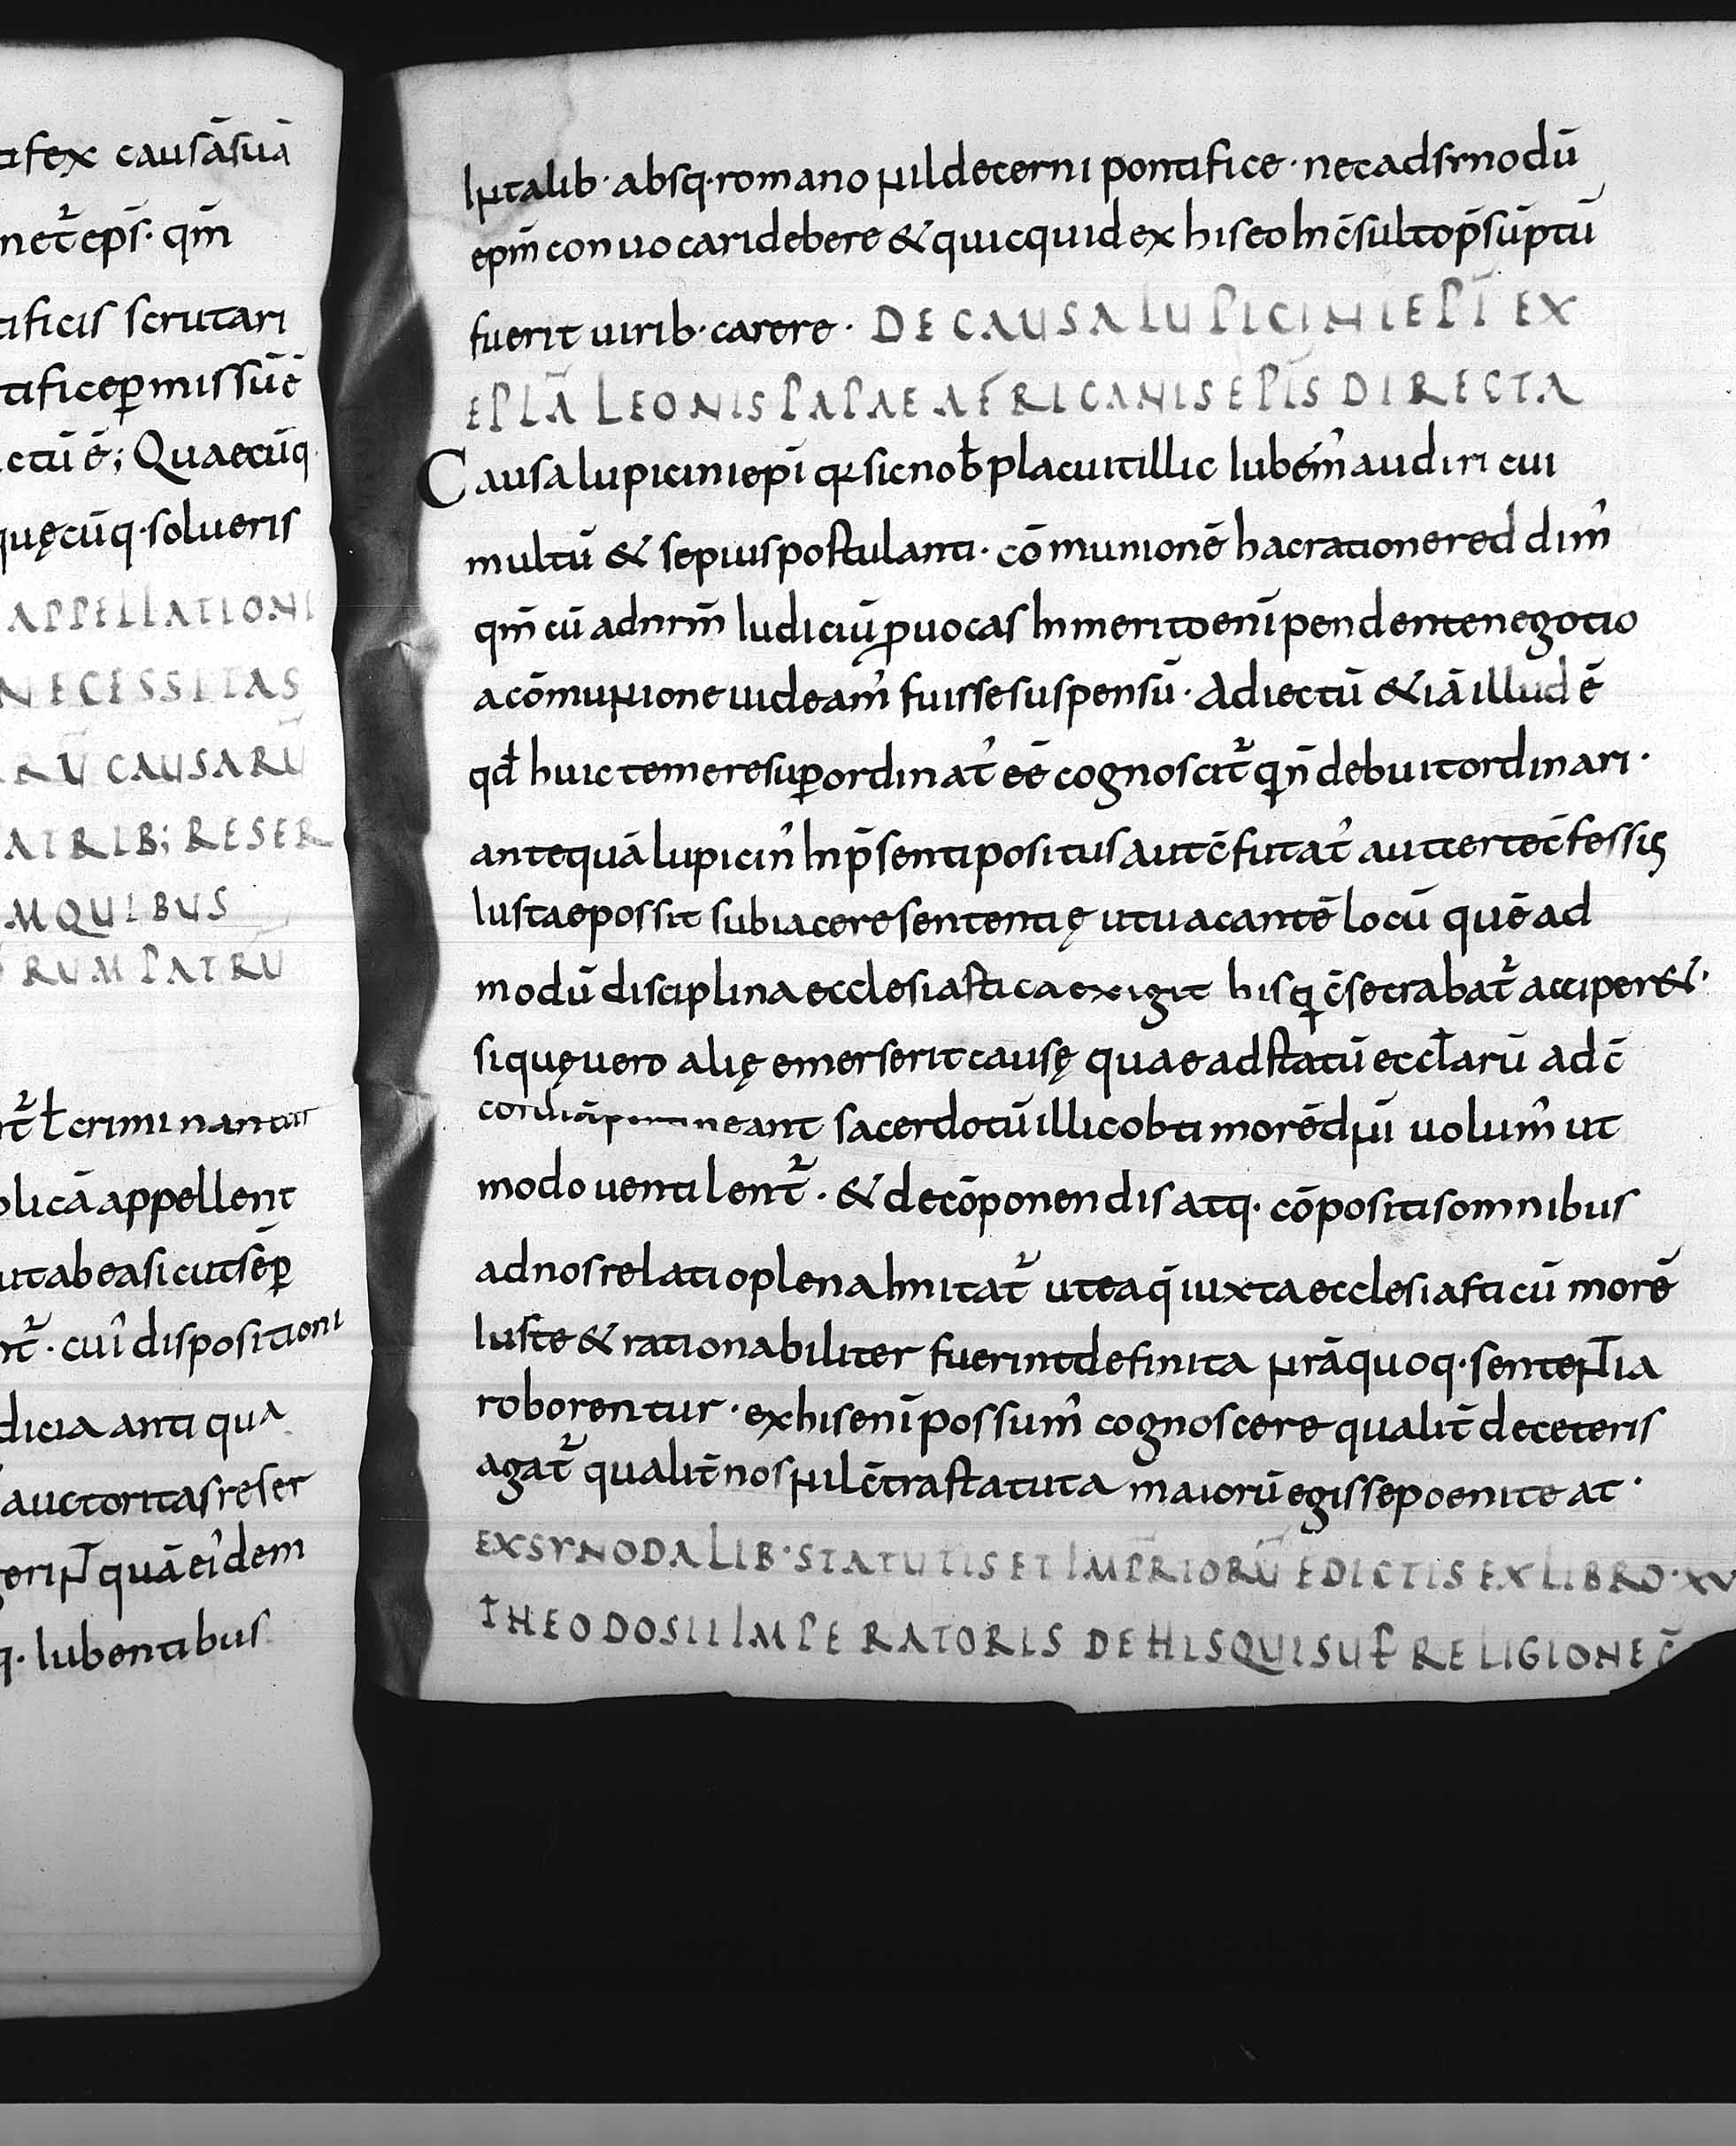 ifex causāsuā
net̄ ep̄s· qm̄
ificis scrutari
tificep̲missū ē
ctū ē; Quaecūq·
quęcūq·solueris
APPELLATIONI
NECESSITAS
RŪ CAUSARŪ
ATRIB; RESER
MQUIBUS
RUM PATRŪ
nt̄ ł criminantur
olicā appellent
utabeasicutsēp̲
nt̄· cuı᾽dispositioni
dicia antiqua
auctoritasreser
geriNT quāei᾽dem
q· Iubentibus
INtalib· absq·romano Nildecerni pontifice· necadsynodū
epm̄ conuocaridebere &quicquid ex hiseo inc̄sultop̄sūptū
fuerit uirib·carere· DE CAUSA LUPICINI EPĪ EX
EPLĀ LEONIS PAPAE AFRICANIS EPĪS DIRECTA
Causalupiciniepī q sicnob̄ placuitillic Iubem᾽ audiri cui
multū & sepiuspostulanti· cōmunionē hacrationereddim᾽
qm̄ cū adnrm̄ Iudiciū ꝓuocas Inmeritoenī pendentenegotio
acōmuNione uideam᾽ fuissesuspensū· Adiectū &iā illud ē
qd̄ huic temeresup̲ordinat᾽ eē cognoscit̄ qn̄ debuitordinari·
antequā lupicin᾽ Inp̄sentipositus autc̄futat᾽ autcertec̄fessis
Iustaepossit subiaceresententię utuacantē locū quēad
modū disciplinaecclesiasticaexigit hisq c̄secrabat̄ acciper&·
siquęuero alię emerserit causę quaeadstatū eccl̄arū adc̄
cordiāpertineant sacerdotū illicobtimorēdNī uolum᾽ ut
modo uentilent̄· &decōponendis atq· cōpositisomnibus
adnosrelatioplenaInitat̄ uteaq̄ iuxtaecclesiasticū morē
Iuste &rationabiliter fuerintdefinita Nrāquoq·senteNTia
roborentur· exhisenī possum᾽ cognoscere qualit̄ deceteris
agat̄ qualit̄ nosNilc̄trastatuta maiorū egissepoeniteat·
EXSYNODALIB·STATUTIS ET IMPR̄IORŪ EDICTIS EX LIBRO·XV
THEODOSII IMPERATORIS DE HISQUISUP̲ RELIGIONE C̄